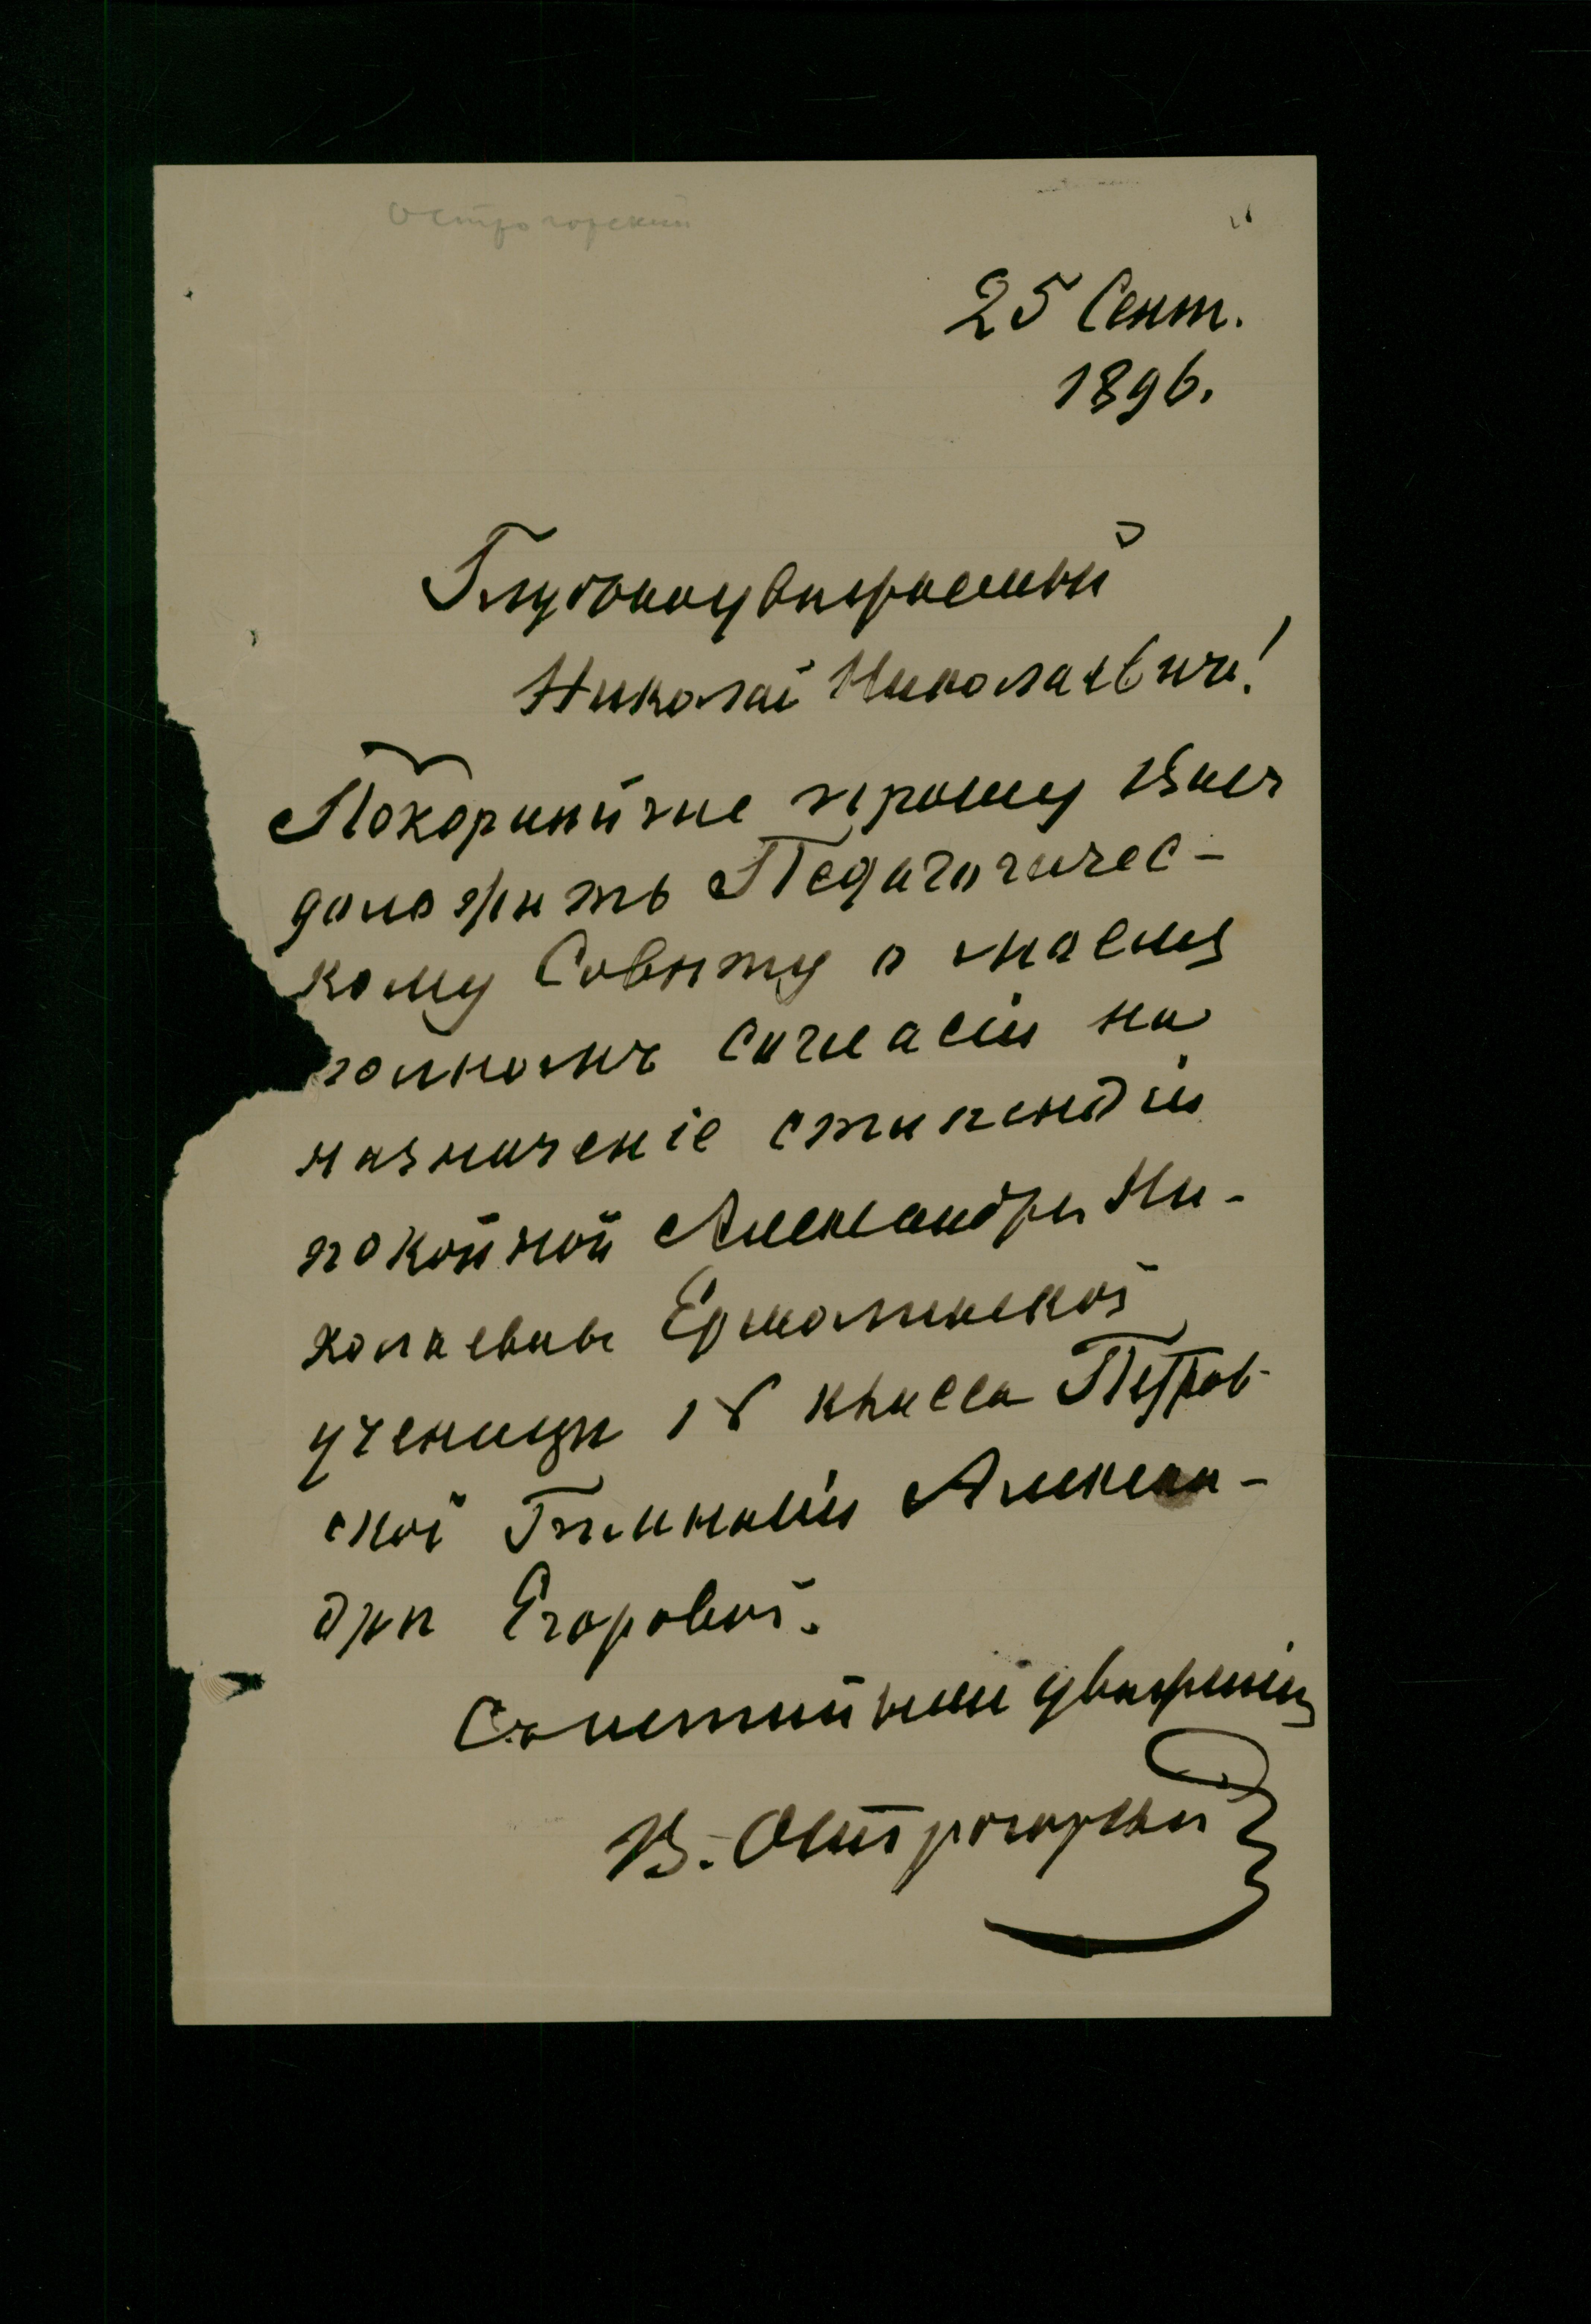 Острогорский
25 Сент.
1896.
Глубокоуважаемый
Николай Николаевичъ!
Покорнѣйше прошу Васъ
доложить Педагогичес-
кому Совѣту о моемъ
полномъ согласіи на
назначеніе стипендіи
покойной Александры Ни-
колаевны Ермолинской
ученицѣ IV класса Петров-
ской Гимназіи Алексан-
дрѣ Егоровой.
Съ истиннымъ уваженіемъ
В. Острогорскій